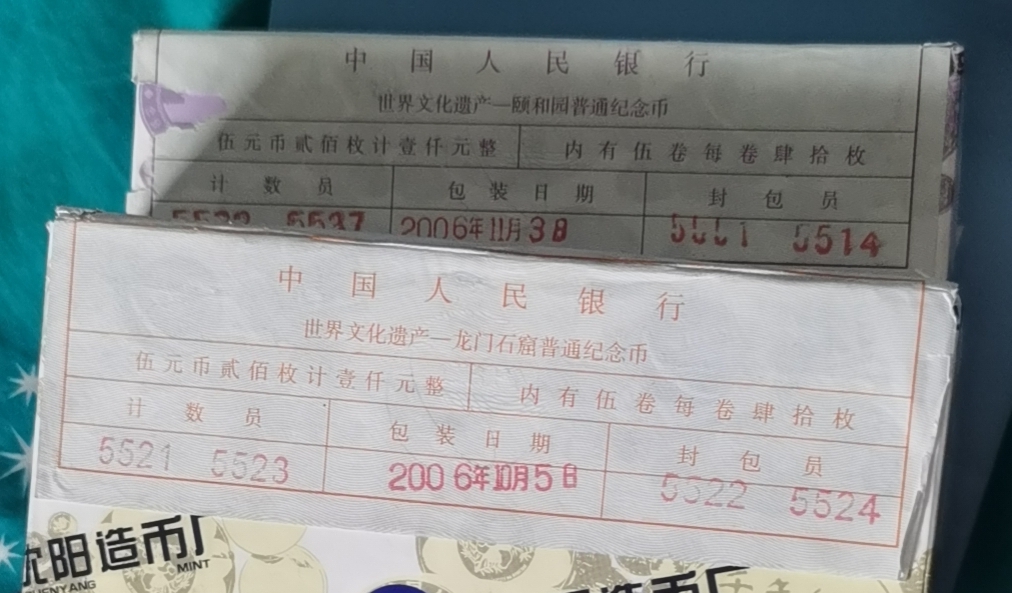 中国人民银行
世界文化遗产—颐和园普通纪念币
伍元币贰佰枚计壹仟元整 内有伍卷每卷肆拾枚
计数员 包装日期 封包员
5537 2006年11月3日 5514
中国人民银行
世界文化遗产—龙门石窟普通纪念币
伍元币贰佰枚计壹仟元整 内有伍卷每卷肆拾枚
计数员 包装日期 封包员
5521 5523 2006年10月5日 5522 5524
沈阳造币厂
SHENYANG MINT
造币厂